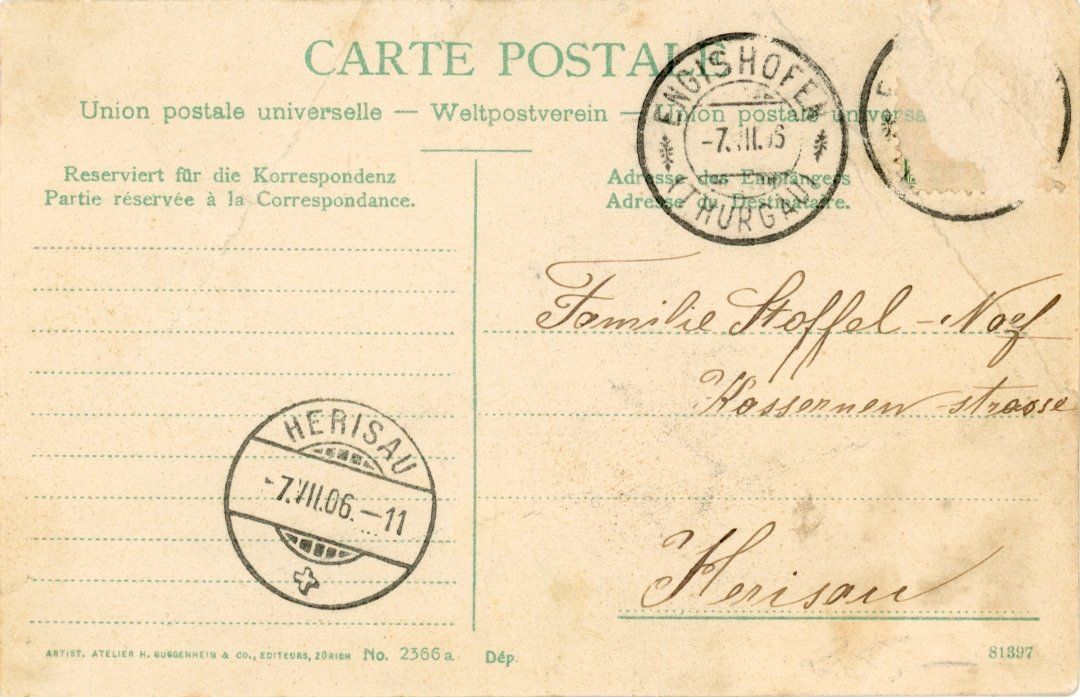 CARTE POSTALE
Union postale universelle — Weltpostverein — Union postale universa
ENGISHOFEN
(THURGAU)
Reserviert für die Korrespondenz
Partie réservée à la Correspondance.
Adresse des Empfängers
Adresse du Destinataire.
Familie Stoffel - Naef
Kassernen strasse
Herisau
HERISAU
-7.VII.06.-11
ARTIST. ATELIER H. GUGGENHEIM & CO., EDITEURS, ZÜRICH No. 2366a. Dép.
81397